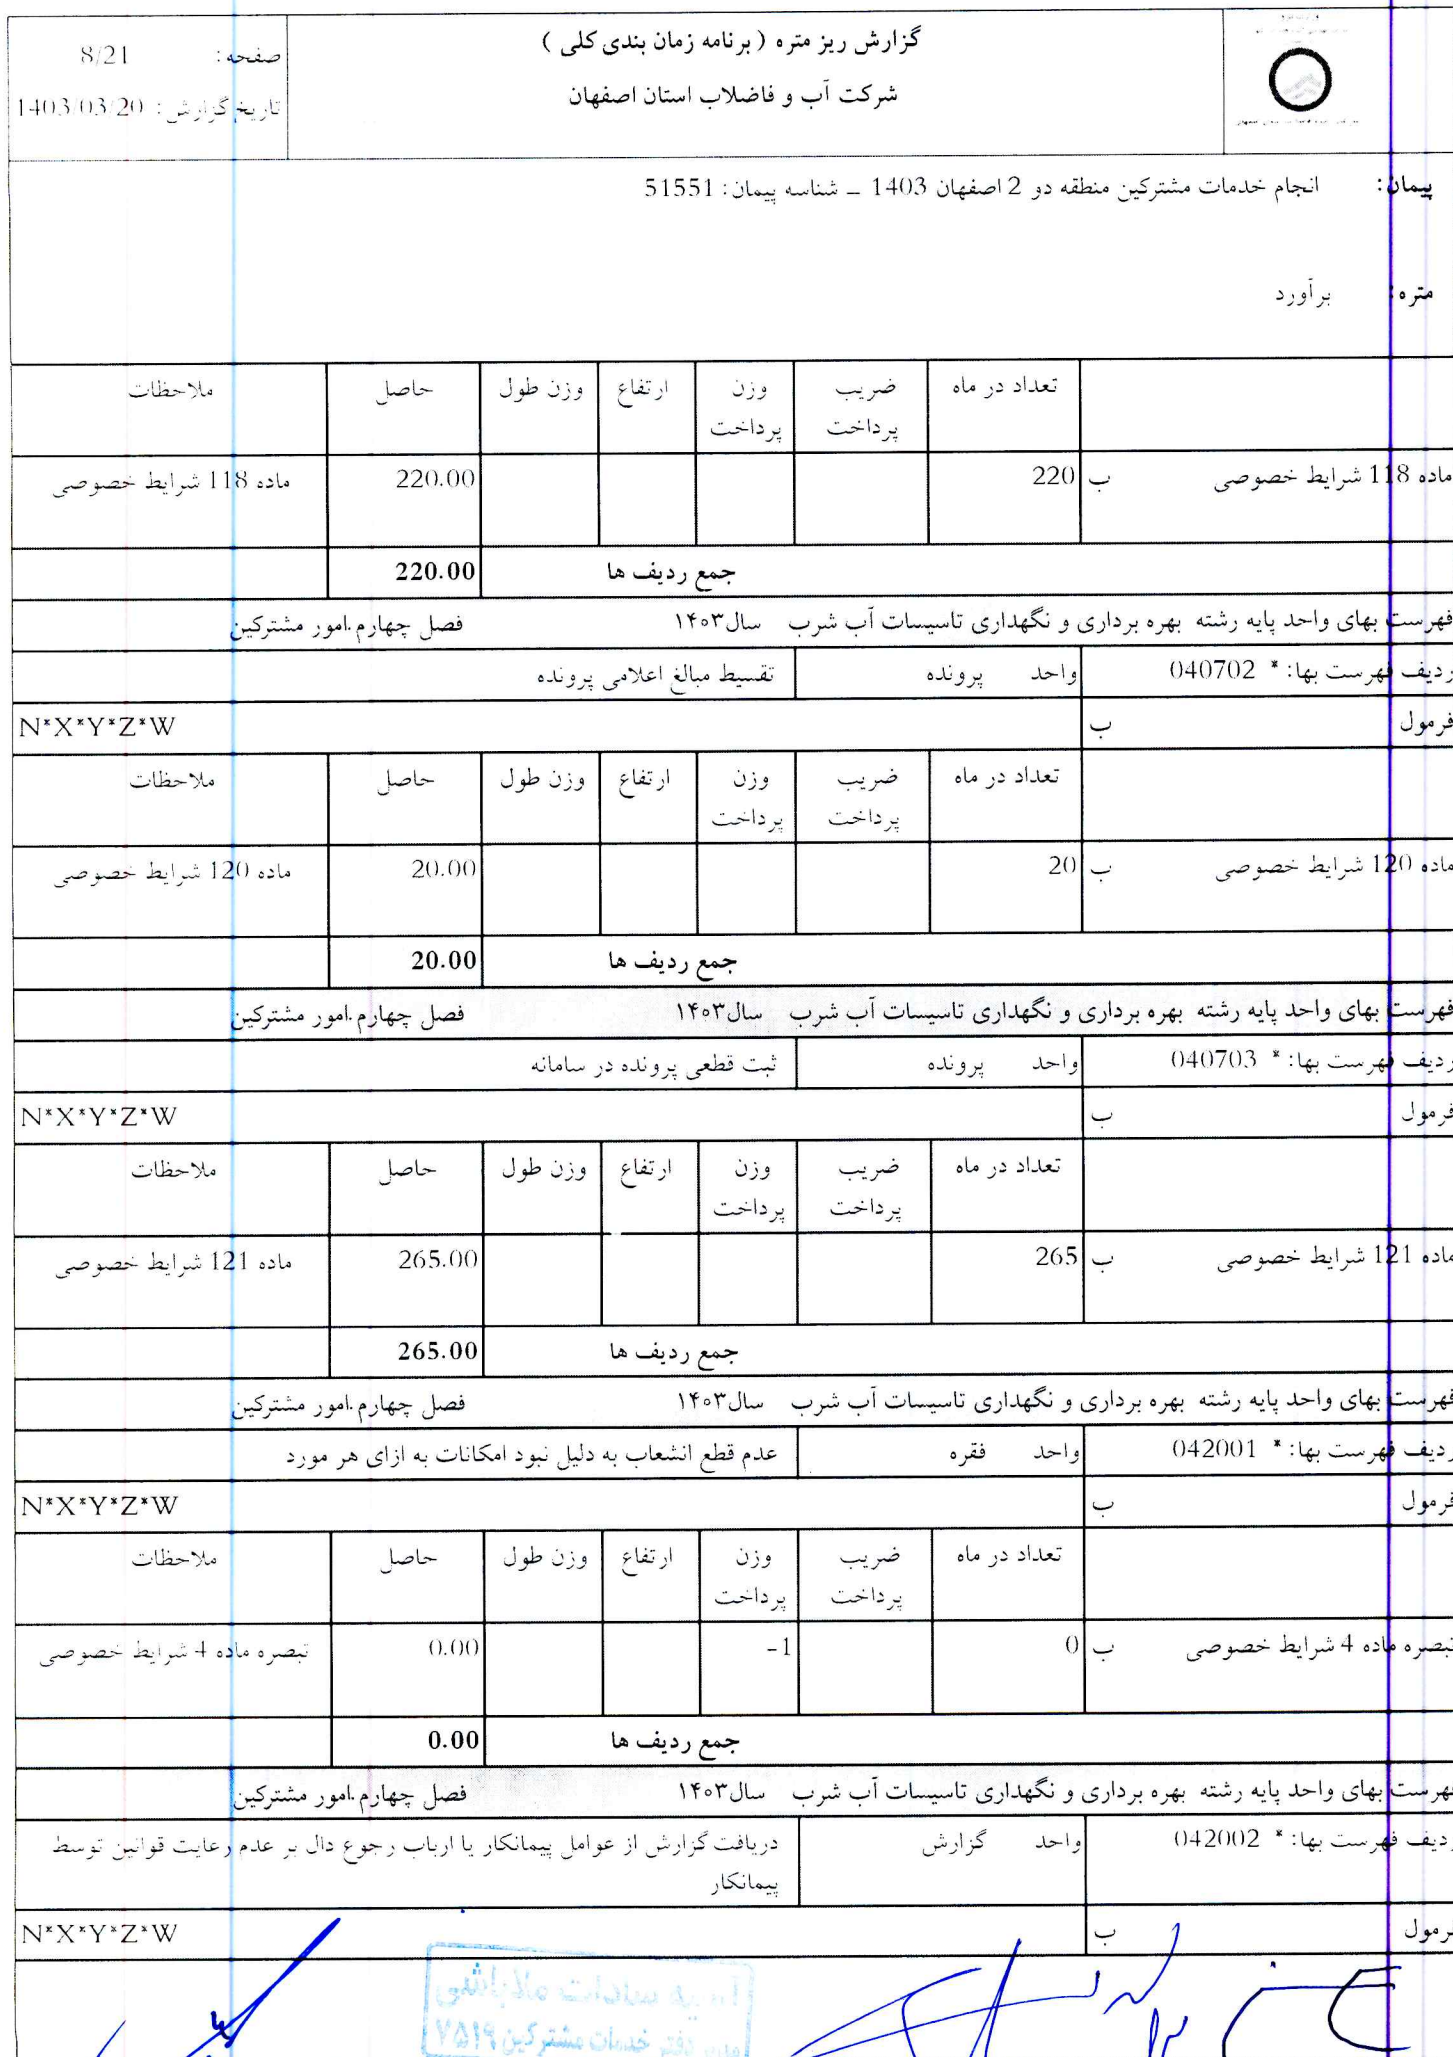 گزارش ریز متره ( برنامه زمان بندی کلی )
شرکت آب و فاضلاب استان اصفهان
صفحه: 8/21
تاریخ گزارش: 1403/03/20
پیمان: انجام خدمات مشترکین منطقه دو 2 اصفهان 1403 – شناسه پیمان: 51551
متره: برآورد
تعداد در ماه ضریب پرداخت وزن پرداخت ارتفاع وزن طول حاصل ملاحظات
ماده 118 شرایط خصوصی ب 220 220.00 ماده 118 شرایط خصوصی
جمع ردیف ها 220.00
فهرست بهای واحد پایه رشته بهره برداری و نگهداری تاسیسات آب شرب سال۱۴۰۳ فصل چهارم.امور مشترکین
ردیف فهرست بها: * 040702 واحد پرونده تقسیط مبالغ اعلامی پرونده
فرمول ب N*X*Y*Z*W
تعداد در ماه ضریب پرداخت وزن پرداخت ارتفاع وزن طول حاصل ملاحظات
ماده 120 شرایط خصوصی ب 20 20.00 ماده 120 شرایط خصوصی
جمع ردیف ها 20.00
فهرست بهای واحد پایه رشته بهره برداری و نگهداری تاسیسات آب شرب سال۱۴۰۳ فصل چهارم.امور مشترکین
ردیف فهرست بها: * 040703 واحد پرونده ثبت قطعی پرونده در سامانه
فرمول ب N*X*Y*Z*W
تعداد در ماه ضریب پرداخت وزن پرداخت ارتفاع وزن طول حاصل ملاحظات
ماده 121 شرایط خصوصی ب 265 265.00 ماده 121 شرایط خصوصی
جمع ردیف ها 265.00
فهرست بهای واحد پایه رشته بهره برداری و نگهداری تاسیسات آب شرب سال۱۴۰۳ فصل چهارم.امور مشترکین
ردیف فهرست بها: * 042001 واحد فقره عدم قطع انشعاب به دلیل نبود امکانات به ازای هر مورد
فرمول ب N*X*Y*Z*W
تعداد در ماه ضریب پرداخت وزن پرداخت ارتفاع وزن طول حاصل ملاحظات
تبصره ماده 4 شرایط خصوصی ب 0 -1 0.00 تبصره ماده 4 شرایط خصوصی
جمع ردیف ها 0.00
فهرست بهای واحد پایه رشته بهره برداری و نگهداری تاسیسات آب شرب سال۱۴۰۳ فصل چهارم.امور مشترکین
ردیف فهرست بها: * 042002 واحد گزارش دریافت گزارش از عوامل پیمانکار یا ارباب رجوع دال بر عدم رعایت قوانین توسط
پیمانکار
فرمول ب N*X*Y*Z*W
دفتر خدمات مشترکین ۷۵۱۹